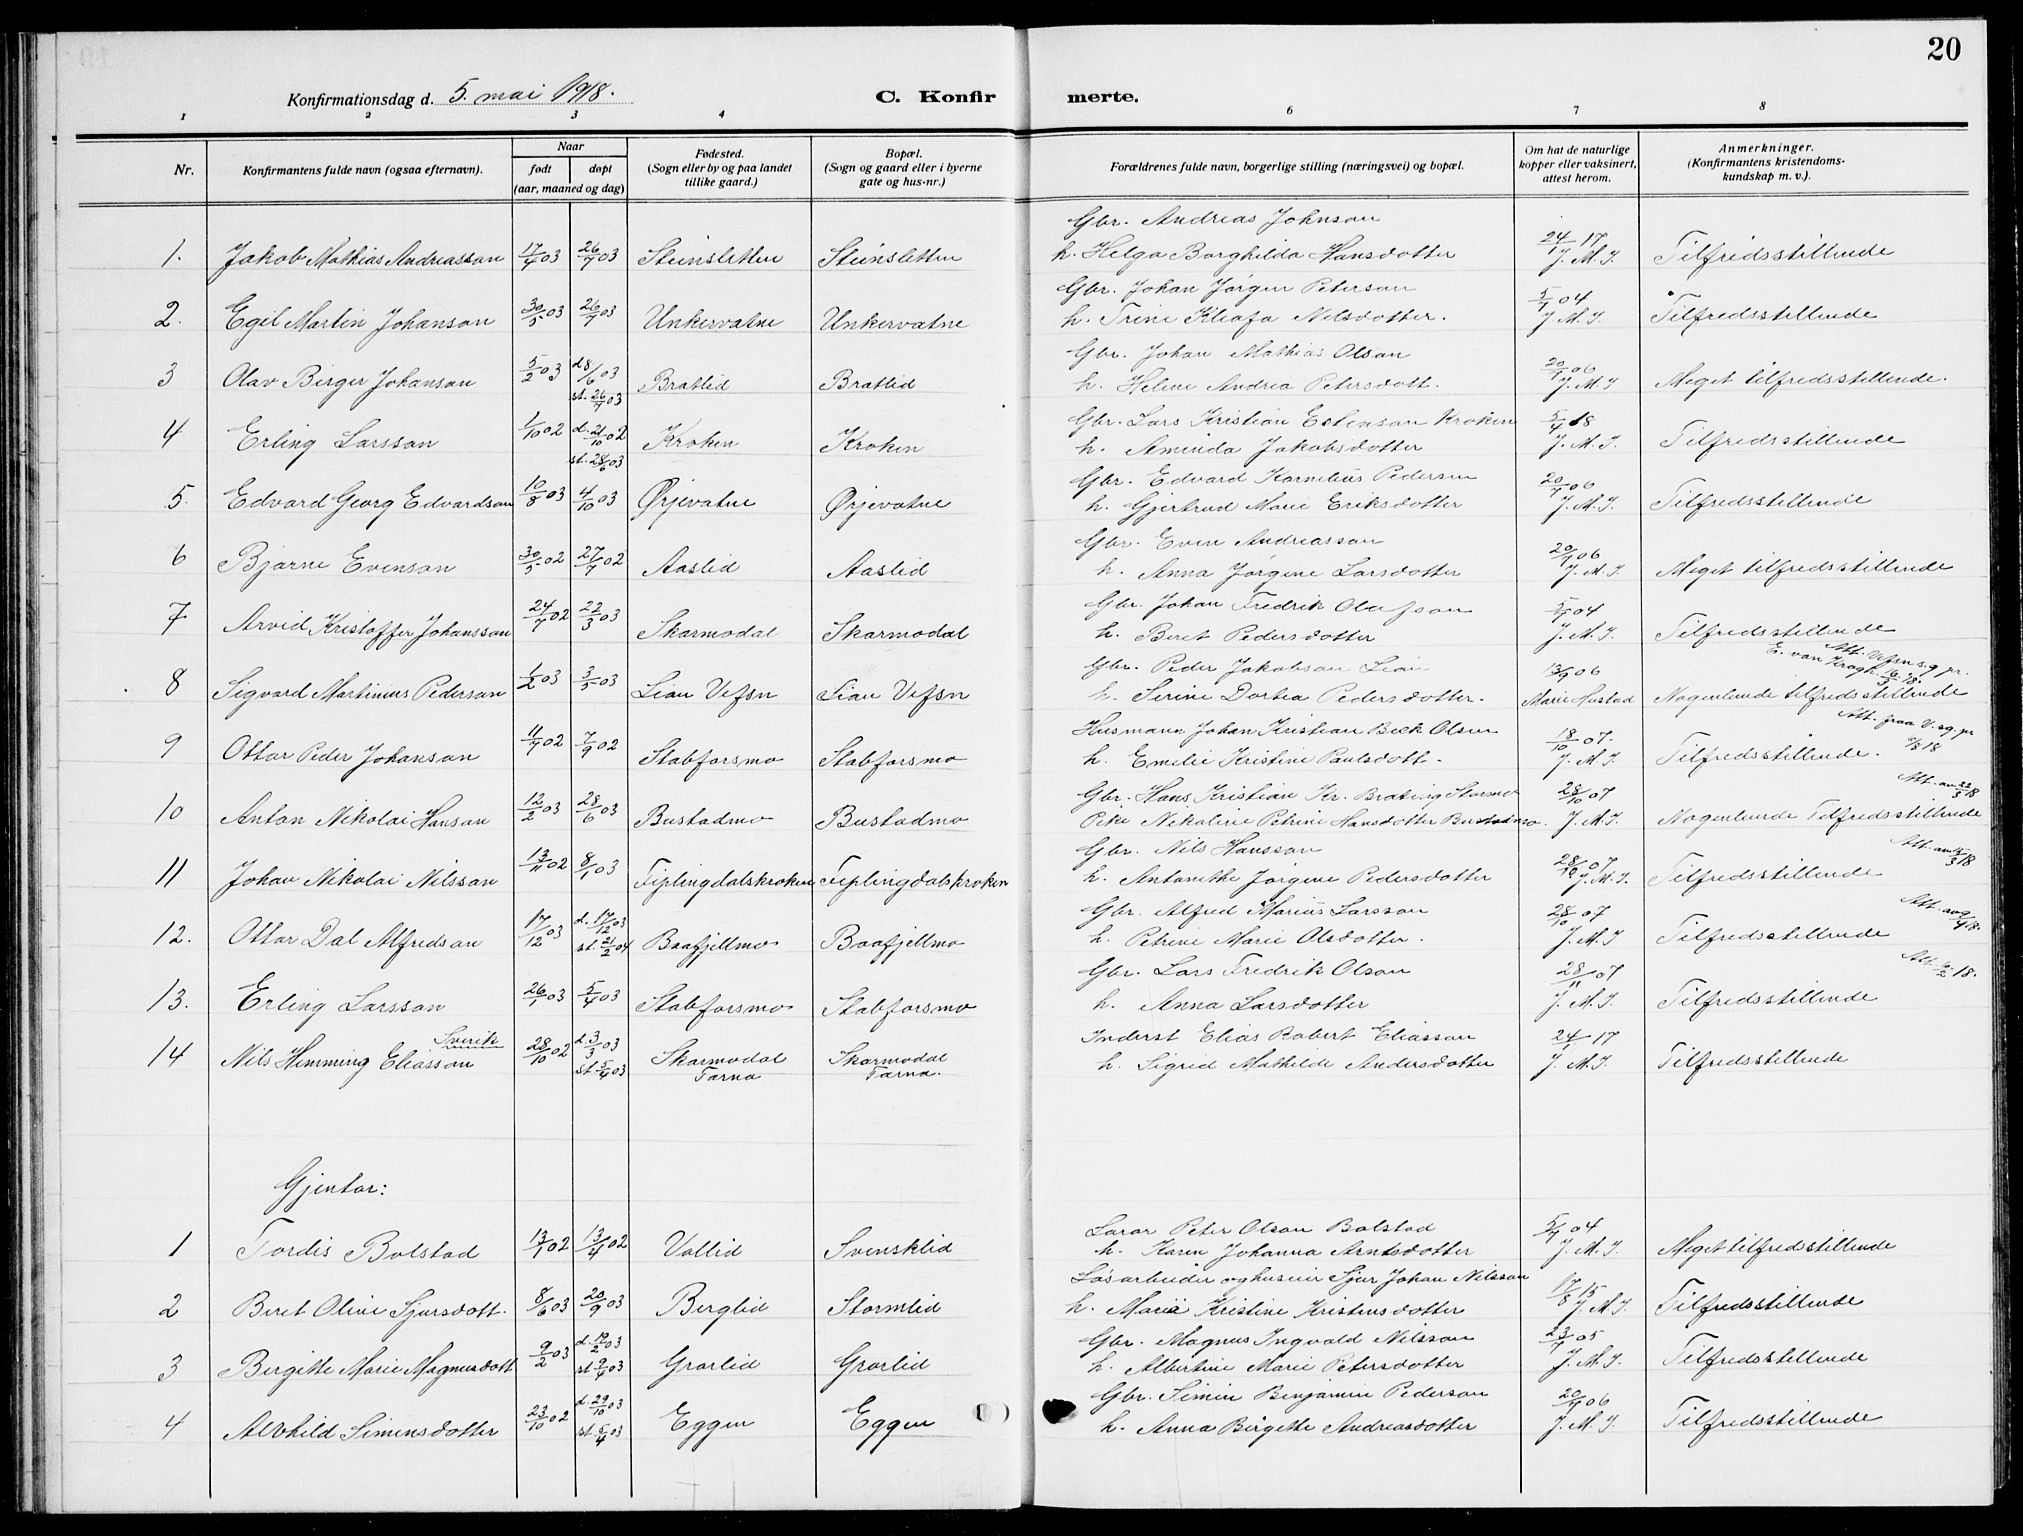 20
Konfirmationsdag d. 5. mai 1918.
C. Konfir
merte.
1 2 3 4 6 7 8
Nr.
Konfirmantens fulde navn (ogsaa efternavn).
Naar
født døpt
(aar, maaned og dag)
Fødested.
(Sogn eller by og paa landet
tillike gaard.)
Bopæl.
(Sogn og gaard eller i byerne
gate og hus-nr.)
Forældrenes fulde navn, borgerlige stilling (næringsvei) og bopæl.
Om hat de naturlige
kopper eller vaksinert,
attest herom.
Anmerkninger.
(Konfirmantens kristendoms-
kundskap m. v.).
Gbr. Andreas Johnson
1. Jakob Mathias Andreasson 17/4 03 26/7 03 Steinsletten Steinsletten h. Helga Borghilda Hansdotter 24/1 17 J. M. J. Tilfredsstillende
Gbr. Johan Jørgen Peterson
2. Egil Martin Johanson 30/5 03 26/7 03 Unkervatne Unkervatne h. Trine Kleofa Nilsdotter. 5/7 04 J. M. J. Tilfredsstillende
Gbr. Johan Mathias Olson
3 Olav Birger Johanson 5/2 03 d 8/6 03 st. 26/7 03 Bratlid Bratlid h. Heline Andrea Petersdott. 20/7 06 J. M. J Meget tilfredsstillende.
Gbr. Lars Kristian Estenson Kroken
4 Erling Larsson 1/10 02 d. 21/10 02 st. 28/6 03 Kroken Kroken h. Aminda Jakobsdotter 5/4 18 J. M. J. Tilfredsstillende
Gbr. Edvard Kornelius Pedersen
5. Edvard Georg Edvardson 10/8 03 4/10 03 Ørjevatne Ørjevatne h. Gjertrud Marie Eriksdotter 20/7 06 J. M. J. Tilfredsstillende
Gbr. Even Andreasson
6 Bjarne Evenson 30/5 02 27/7 02 Aaslid Aaslid h. Anna Jørgine Larsdotter 20/7 06 J. M. J Meget tilfredsstillende
Gbr. Johan Fredrik Olafson
7 Arvid Kristoffer Johansson 24/7 02 22/3 03 Skarmodal Skarmodal h. Beret Pedersdotter 5/7 04 J. M. J. Tilfredsstillende
Att. Vefsn s.g.pr.
E. von Krogh 16/3 18.
Gbr. Peder Jakobson Lian
8 Sigvard Martinius Pederson 1/2 03 3/5 03 Lian Vefsn Lian Vefsn h. Serine Dortea Pedersdotter. 13/9 06 Marie Hustad Nogenlunde tilfredsstillende
Att. fraa V. sg. pr
Husmann Johan Kristian Beck Olsen
9 Ottar Peder Johanson 11/7 02 7/9 02 Stabforsmo Stabforsmo h. Emilie Kristine Paulsdott. 18/10 07. J. M. J Tilfredsstillende.
Att. av 22/3 18
Gbr. Hans Kristian Kr. Brateng Stormo
10 Anton Nikolai Hanson 12/2 03 28/6 03 Bustadmo Bustadmo Pike Nikoline Petrine Hansdotter Bustadmo. 28/10 07 J. M. J. Nogenlunde Tilfredsstillende
Gbr. Nils Hansson
11 Johan Nikolai Nilsson 13/11 02 8/1 03 Tiplingdalskroken Tiplingdalskroken h. Antonethe Jørgine Pedersdotter 28/10 07 J. M. J. Tilfredsstillende
Gbr. Alfred Marius Larsson
12. Ottar Dal Alfredson 17/12 03 d. 17/12 03 st. 21/2 04 Baafjellmo Baafjellmo h. Petrine Marie Olsdotter. 28/10 07 J. M. J Tilfredsstillende
Gbr. Lars Fredrik Olson
13. Erling Larsson 26/1 03 5/4 03 Stabforsmo Stabforsmo h. Anna Larsdotter 28/11 07 J. M. J. Tilfredsstillende
Sverik
Inderst Elias Robert Eliasson
14 Nils Hemming Eliasson 28/10 02 d. 3/3 03 st. 5/4 03 Skarmodal Tarna Skarmodal Tarna. h. Sigrid Mathilde Andersdotter 24/1 17 J. M. J. Tilfredsstillende
Gjentor:
Lærar Peter Olson Bolstad
1 Tordis Bolstad 13/1 02 13/4 02 Vallid Svensklid h. Karen Johanna Arntsdotter 5/7 04 J. M. J. Meget tilfredsstillende
Løsarbeider og huseier Sjur Johan Nilsson
2 Beret Oline Sjursdott. 8/6 03 20/9 03 Berglid Stormlid h. Maria Kristine Kristensdotter 17/8 15 J. M. J. Tilfredsstillende
Gbr. Magnus Ingvald Nilsson
3 Birgitte Marie Magnusdott 9/2 03 d. 19/2 03 st. 9/4 03 Grørlid Grørlid h. Albertine Marie Petersdotter 23/7 05 J. M. J. Tilfredsstillende
Gbr. Simen Benjamin Pederson
4 Alvhild Simensdotter 23/10 02 d. 29/10 03 st. 5/4 03 Eggen Eggen h. Anna Birgitte Andreasdotter 20/7 06 J. M. J. Tilfredsstillende